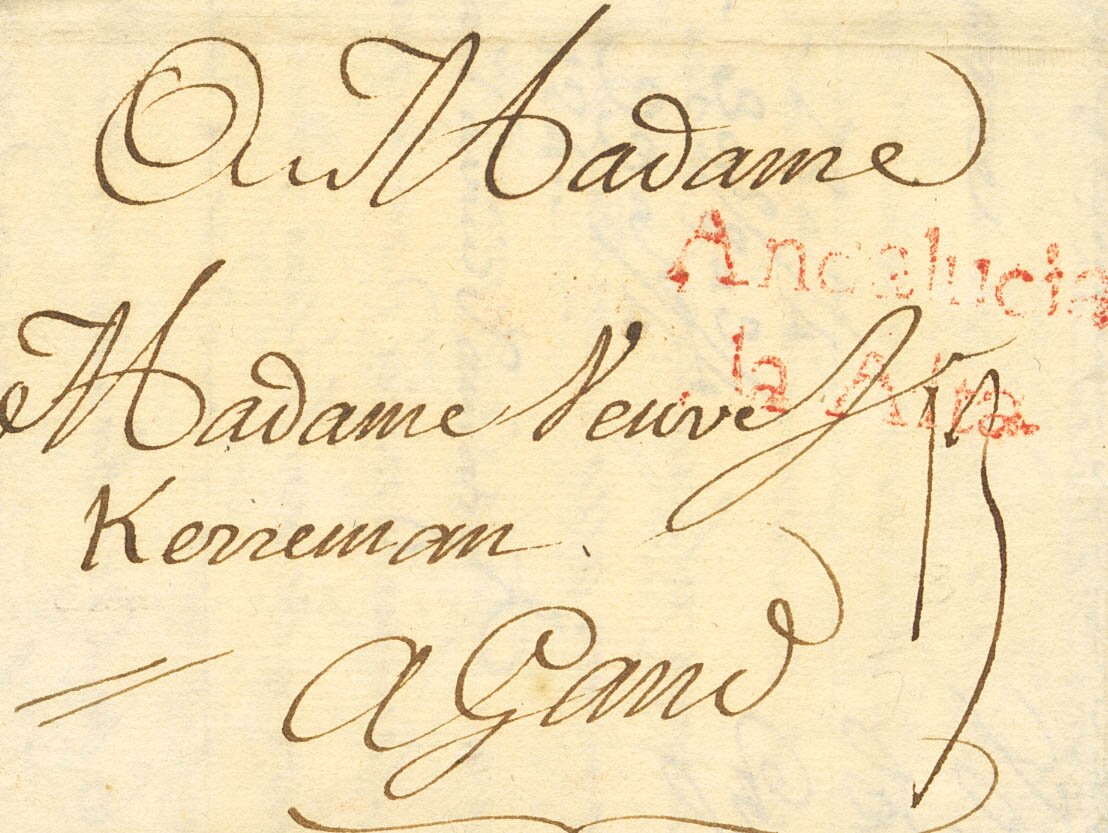 Au Madame
Andalucia
la Alta
Madame Veuve
Kerreman.
A Gand